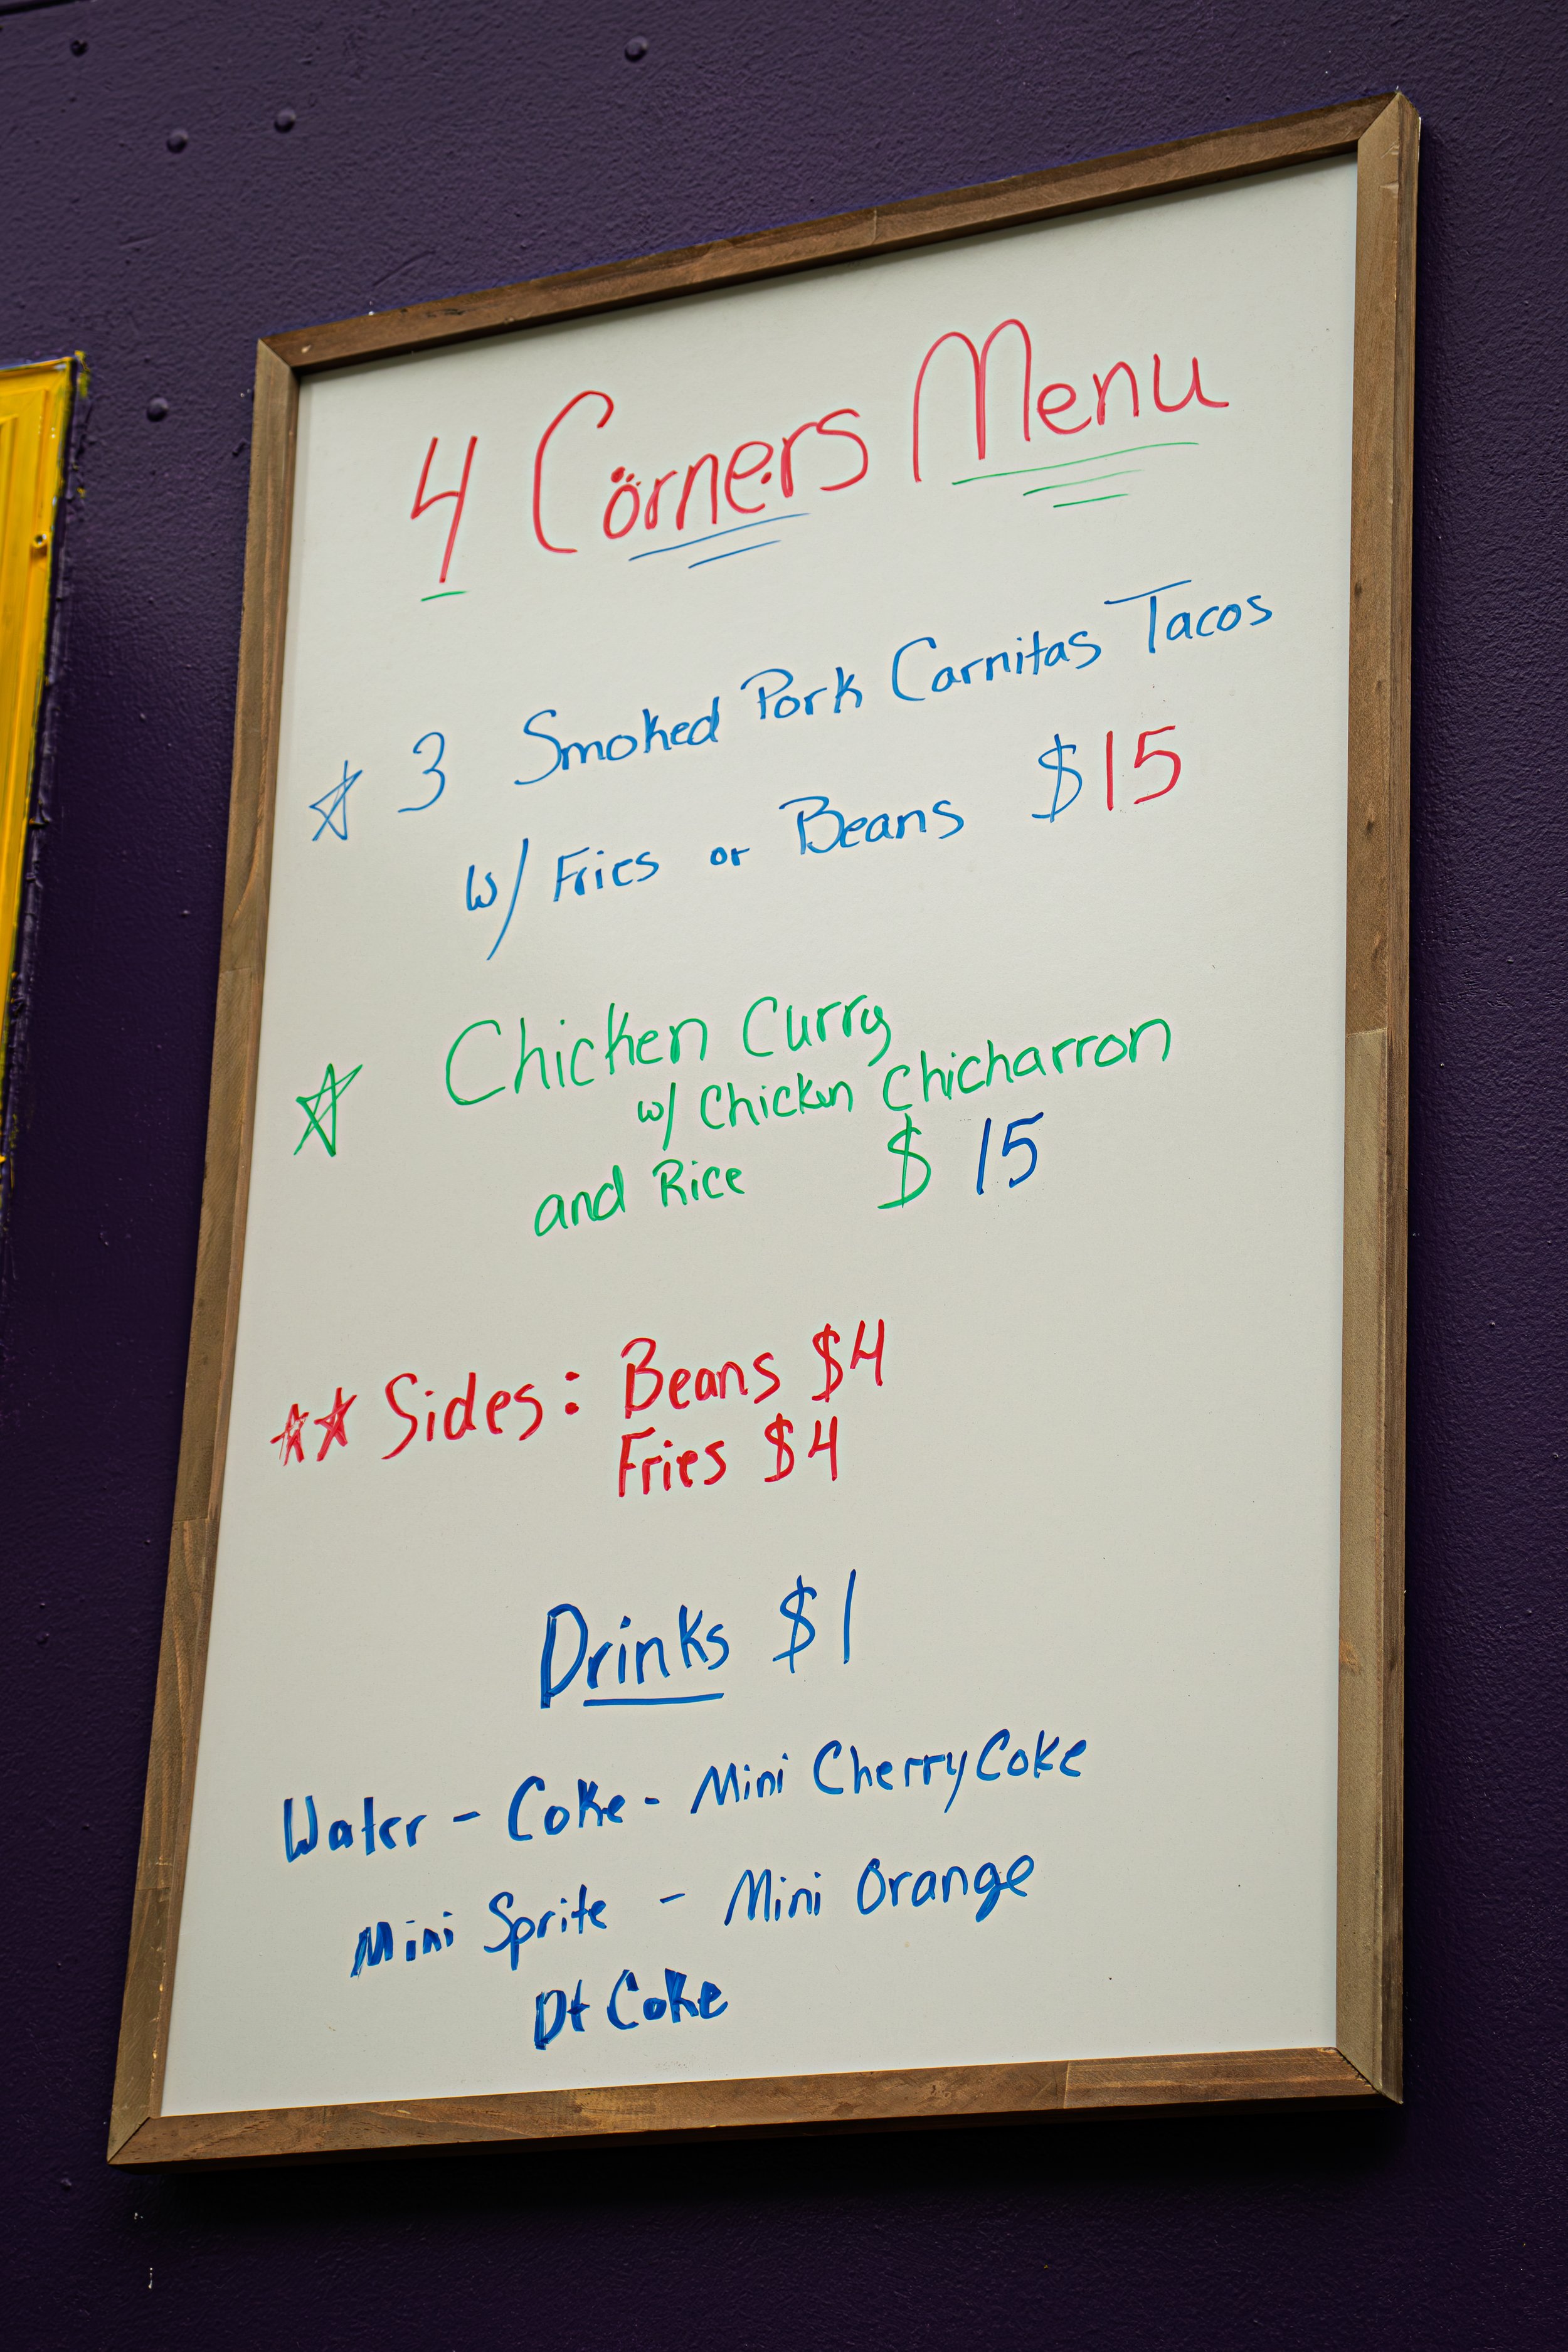 4 Corners Menu
☆ 3 Smoked Pork Carnitas Tacos
w/ Fries or Beans $15
☆ Chicken Curry
w/ Chicken Chicharron
and Rice $15
☆☆ Sides: Beans $4
Fries $4
Drinks $1
Water - Coke - Mini Cherry Coke
Mini Sprite - Mini Orange
Dt Coke